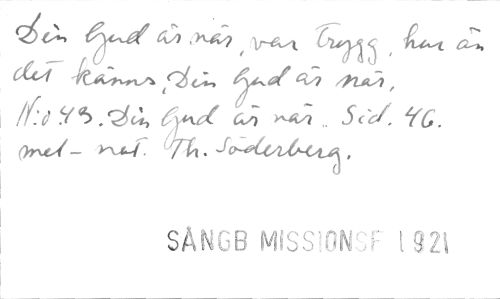 Din Gud är när, var trygg, hur än
det känns, Din Gud är när.
N:o 43. Din Gud är när. Sid. 46.
mel- not. Th. Söderberg.
SÅNGB MISSIONSF 1921